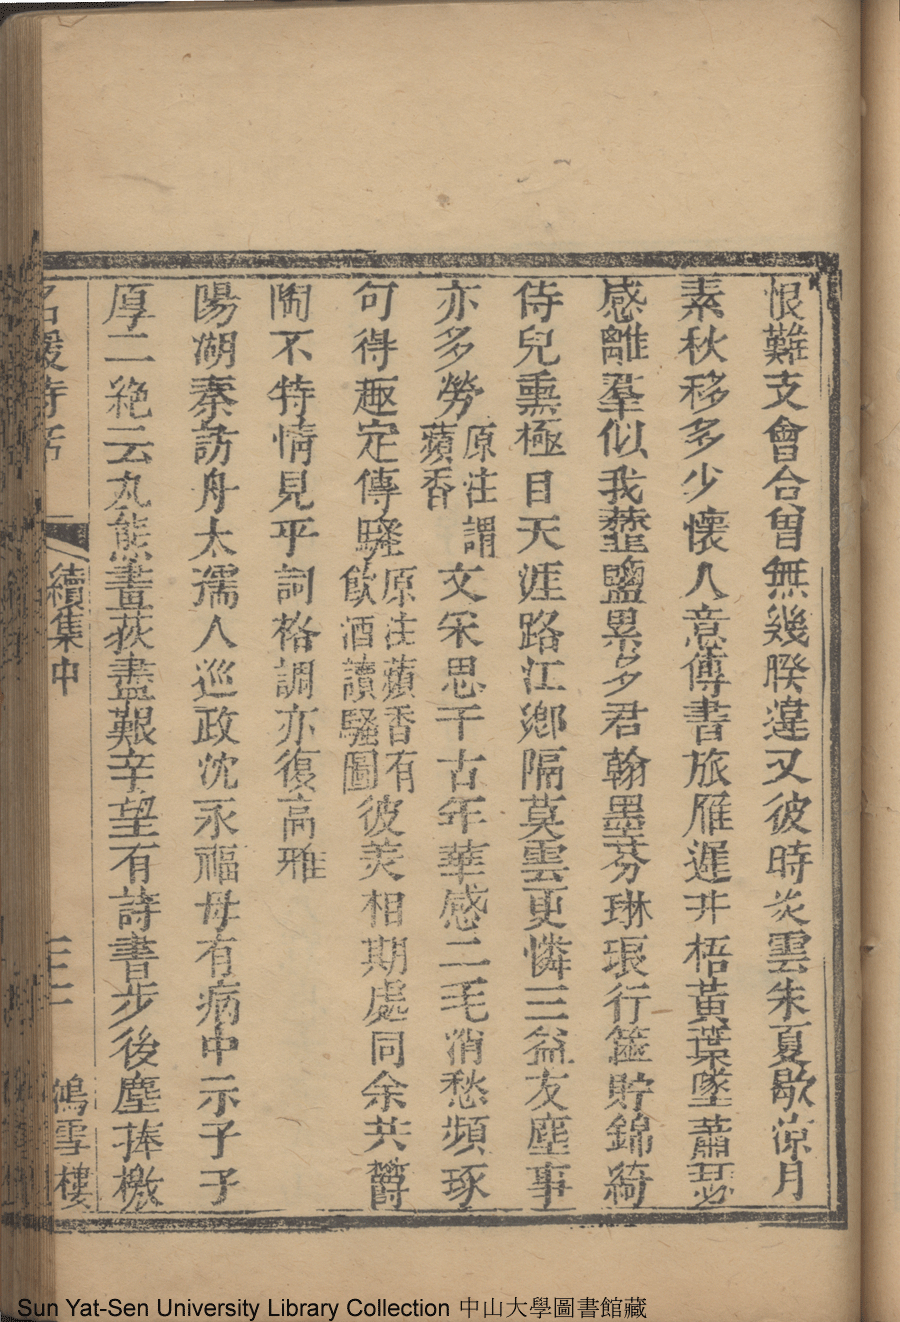 恨難支會合曾無幾睽違又彼時炎雲朱夏歇涼月
素秋移多少懷人意傳書旅雁遲井梧黃葉墜蕭瑟
感離羣似我虀鹽累多君翰墨芬琳琅行篋貯錦綺
侍兒熏極目天涯路江鄉隔莫雲更憐三益友塵事
亦多勞原注謂蘋香文宋思千古年華感二毛消愁頻琢
句得趣定傳騷原注蘋香有飲酒讀騷圖彼美相期處同余共鬱
陶不特情見乎詞格調亦復高雅
陽湖秦訪舟太孺人巡政沈永福母有病中示子子
厚二絶云丸熊畫荻盡艱辛望有詩書步後塵捧檄
名媛詩話 續集中 三二 鴻雪樓
Sun Yat-Sen University Library Collection 中山大學圖書館藏